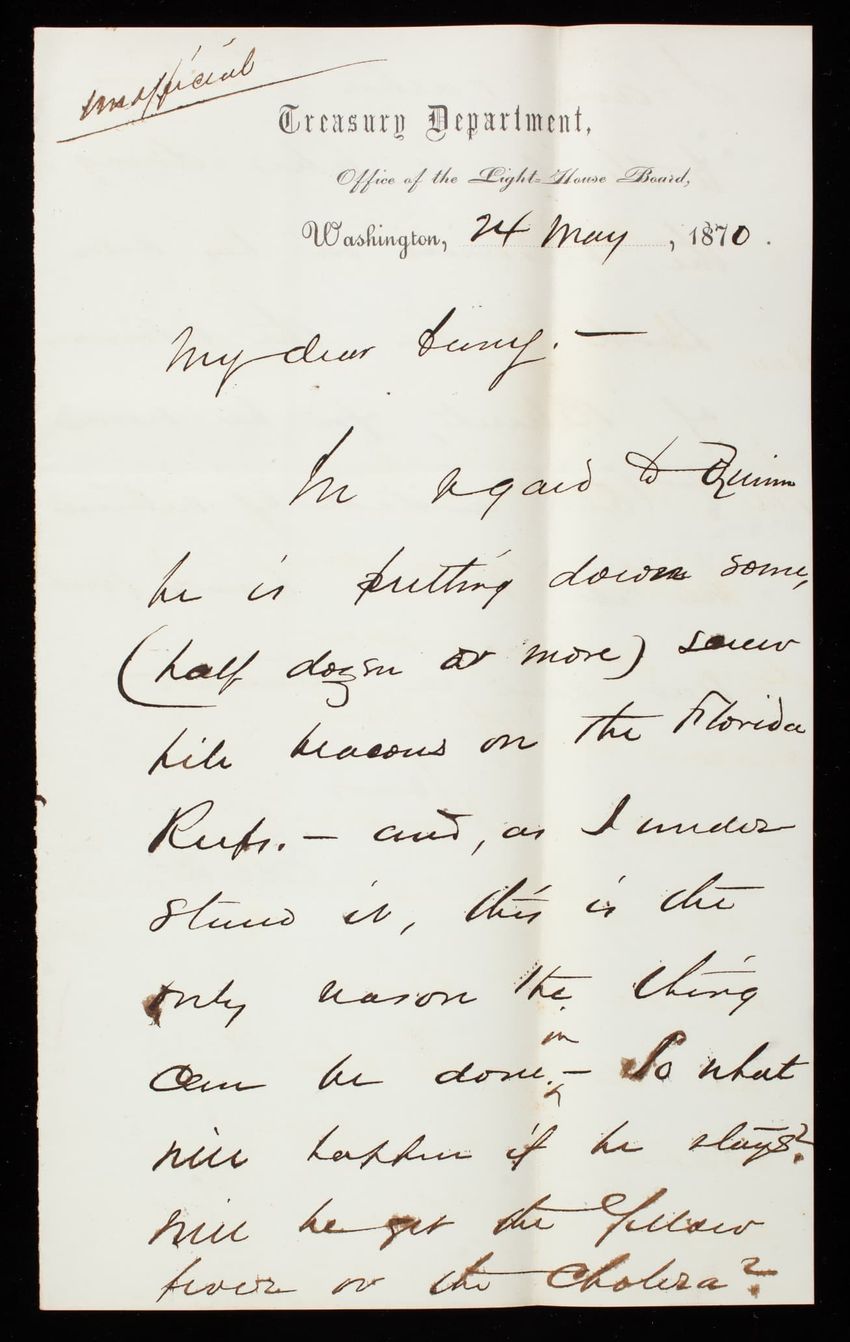 unofficial
Treasury Department,
Office of the Light-House Board,
Washington, 24 May, 1870.
My dear
In regard to Quinn
he is putting down some,
(half dozen or more) screw
pile beacons on the Florida
Reefs. — and, as I under
stand it, this is the
only reason the thing
can be done. — So what
will happen if he stays?
Will he get the Yellow
fever or the Cholera?